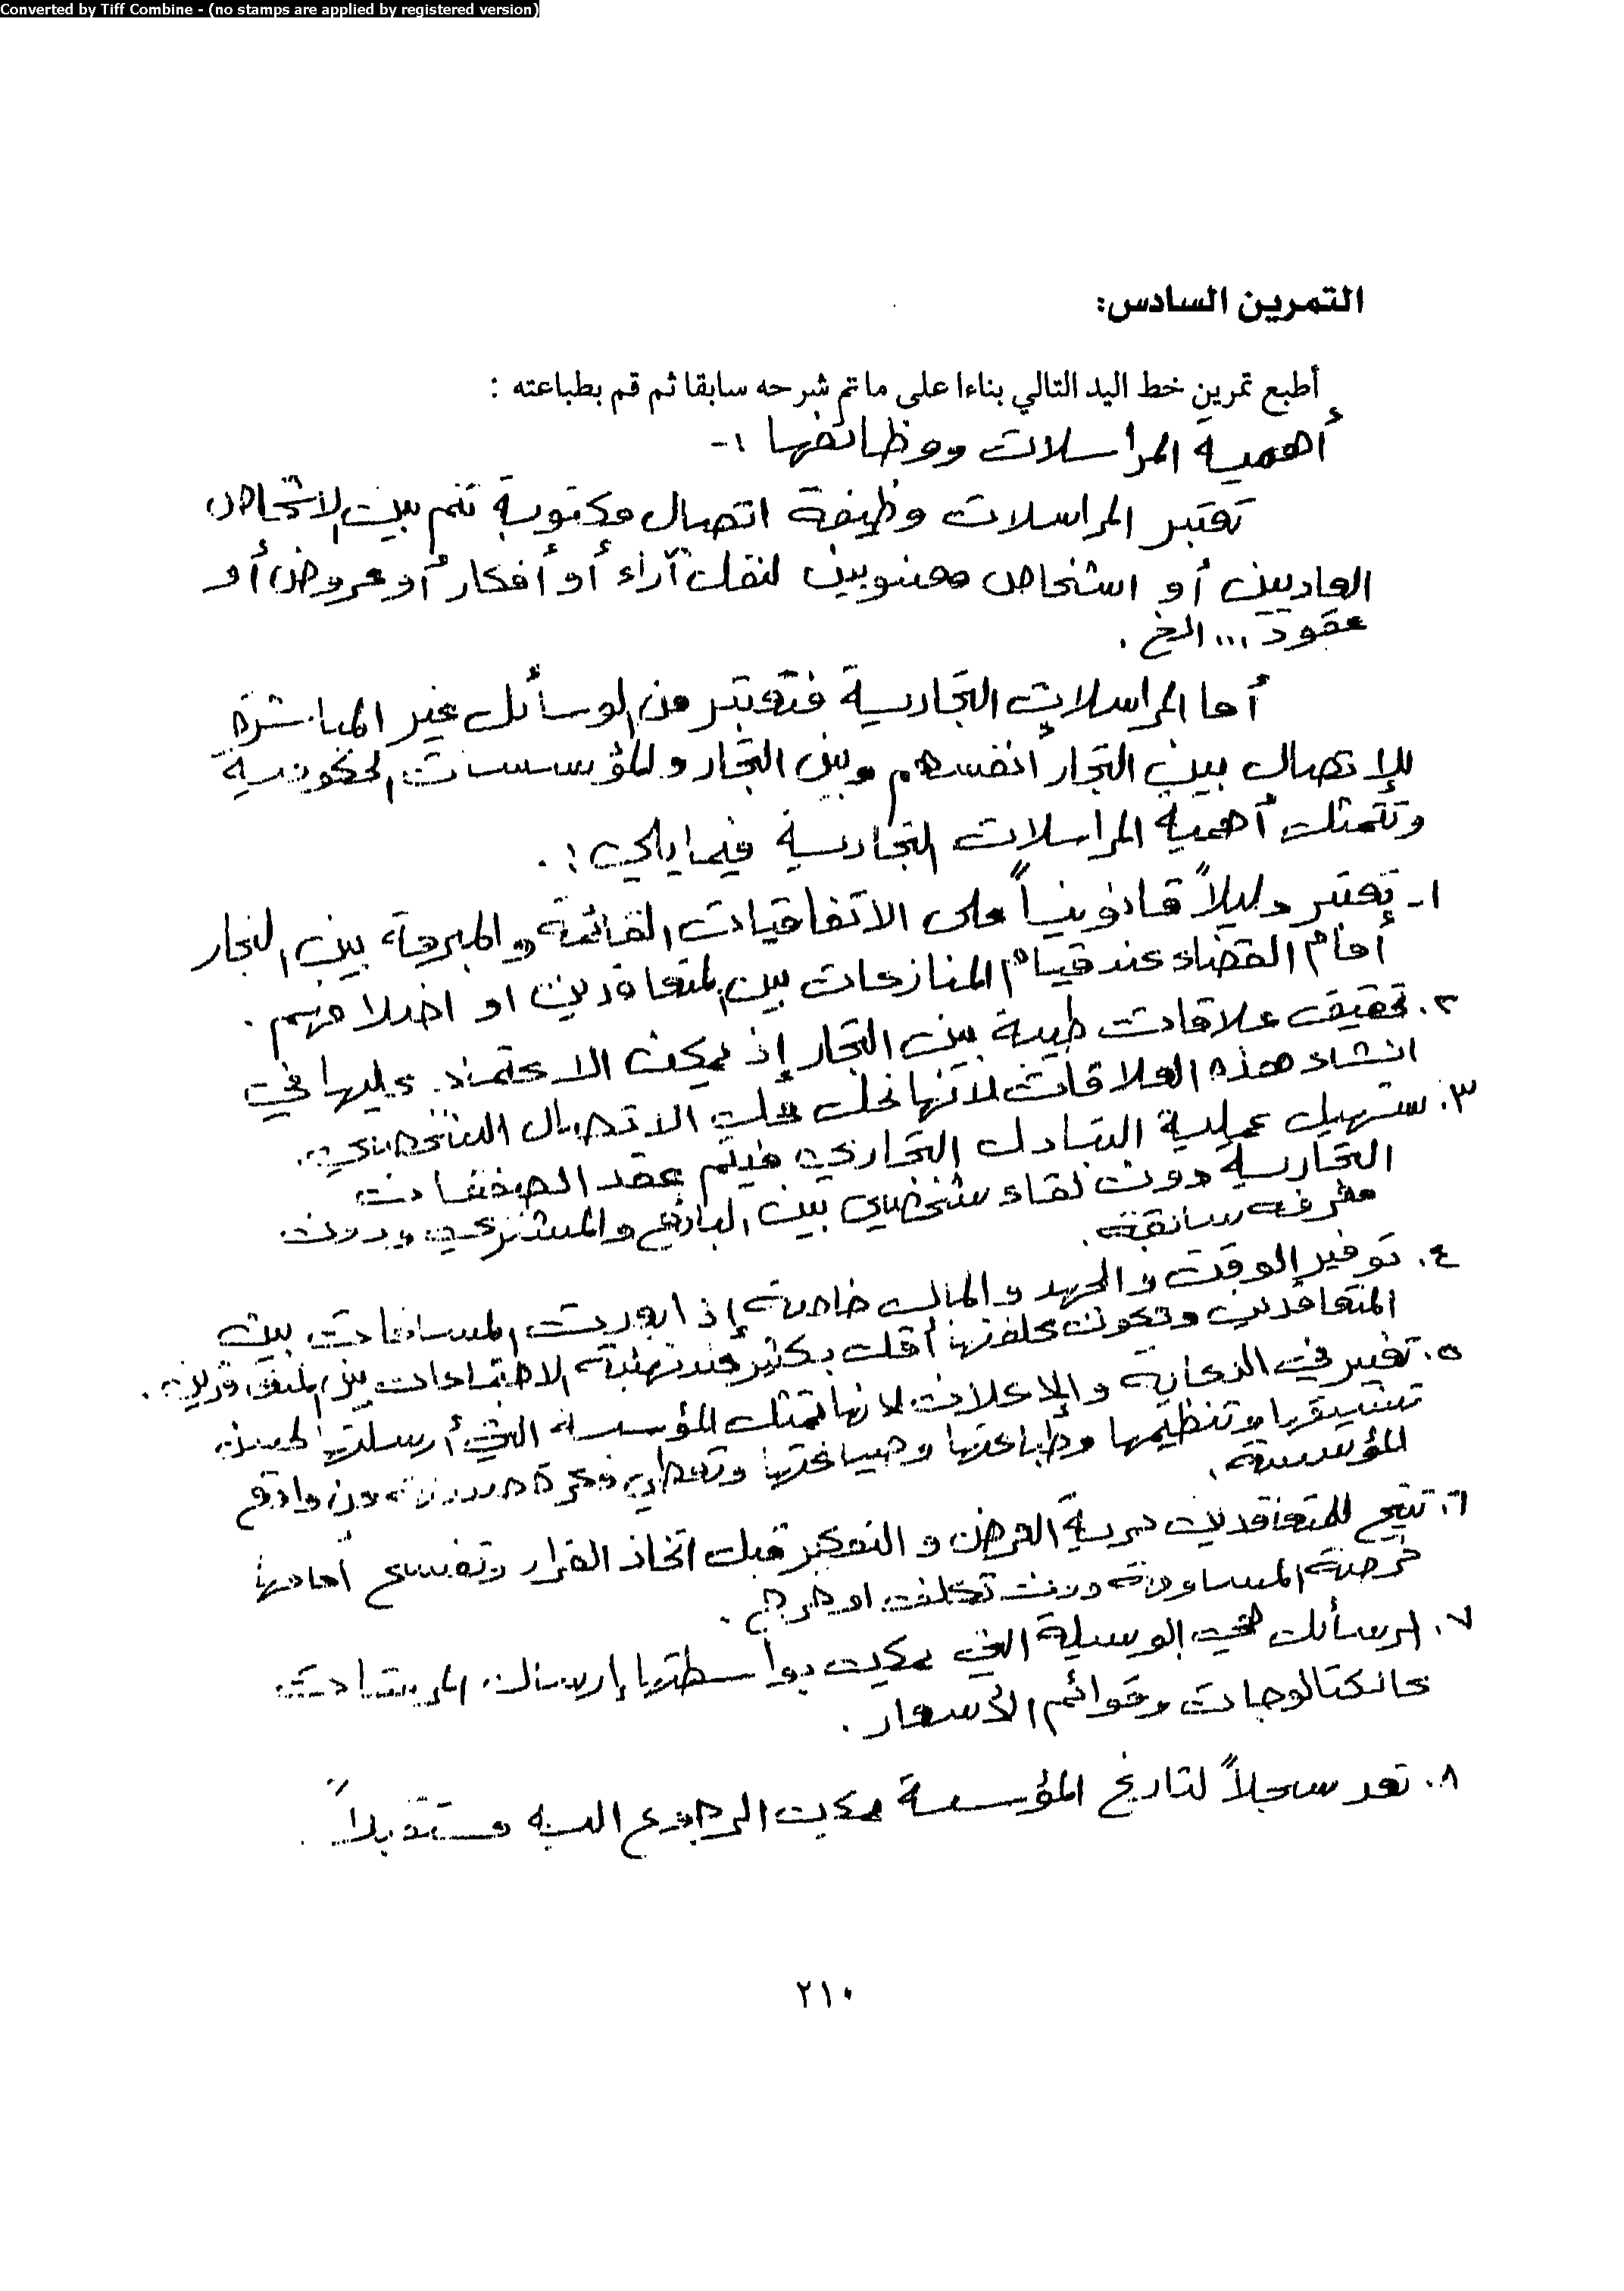 Converted by Tiff Combine - (no stamps are applied by registered version)
التمرين السادس:
أطبع تمرين خط اليد التالي بناءا على ما تم شرحه سابقا ثم قم بطباعته :
أهمية المراسلات ووظائفها :-
تعتبر المراسلات وظيفة اتصال مكتوبة تتم بين الاشخاص
العاديين أو اشخاص معنويين لنقل آراء أو أفكار أو عروض أو
عقود ... الخ .
أما المراسلات التجارية فتعتبر من الوسائل غير المباشرة
للإتصال بين التجار انفسهم وبين التجار والمؤسسات الحكومية
وتتمثل أهمية المراسلات التجارية فيما يلي :.
١- تعتبر دليلاً قانونياً على الاتفاقيات القائمة والمبرمة بين التجار
أمام القضاء عند قيام المنازعات بين المتعاقدين او اختلافهم .
٢. تحقيق علاقات طيبة بين التجار إذ يمكن الاعتماد عليها في
انشاء هذه العلاقات لانها تحل محل الاتصال الشخصي.
٣. تسهيل عملية التبادل التجاري فيتم عقد الصفقات
التجارية دون لقاء شخصي بين البائع والمشتري وبدون
معرفه سابقة.
٤. توفير الوقت والجهد والمال خاصة إذا بعدت المسافات بين
المتعاقدين وتكون تكلفتها أقل بكثير من تهيئة الاجتماعات بين المتعاقدين.
٥. تعتبر في الدعاية والإعلان لانها تمثل المؤسسة التي أرسلتها لحسن
تنسيقها وتنظيمها وطباعتها وصياغتها وتعطي فكرة من واقع
المؤسسة.
٦. تتيح للمتعاقدين حرية العرض والتفكير قبل اتخاذ القرار وتفسح أمامها
فرصة المساومة دون تكلف او حرج .
٧. الرسائل هي الوسيلة التي يمكن بواسطتها إرسال
كالكتالوجات وقوائم الأسعار .
٨. تعد سجلاً لتاريخ المؤسسة يمكن الرجوع اليه مستقبلاً .
٢١٠